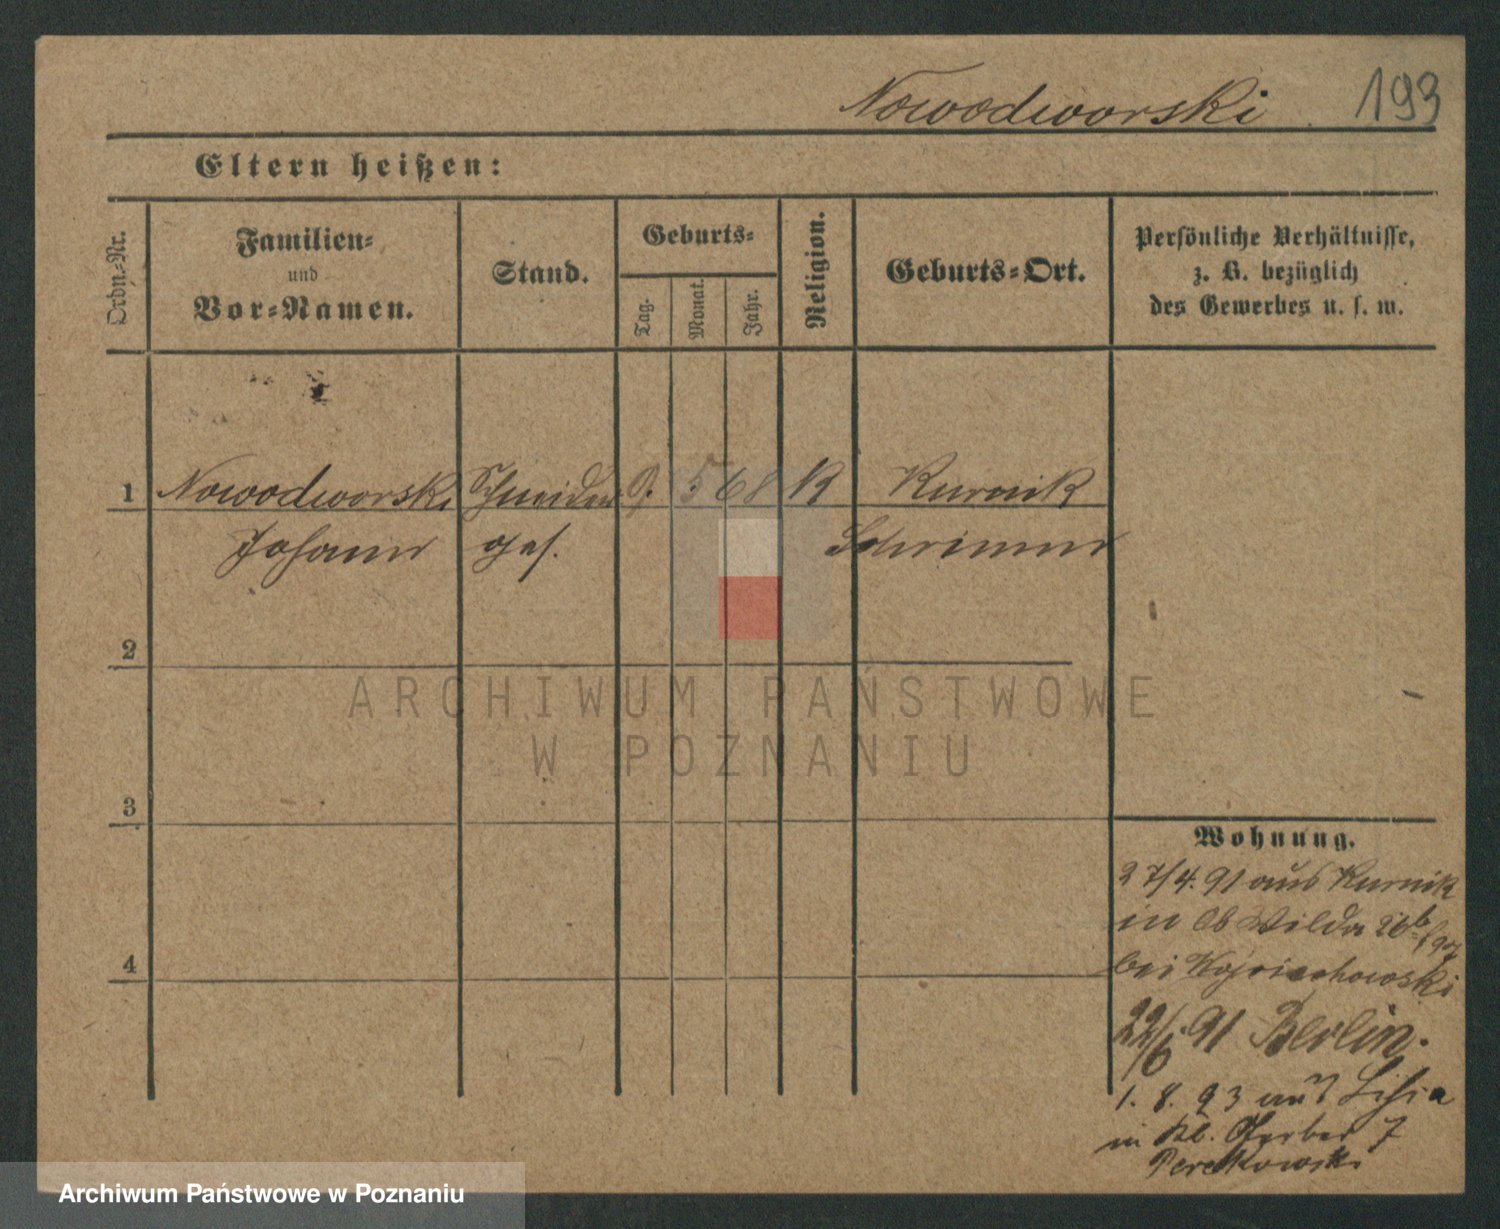 Nowodworski 193
Eltern heißen:
Ordn.-Nr.
Familien-
und
Vor-Namen.
Stand.
Geburts-
Tag.
Monat.
Jahr.
Religion.
Geburts-Ort.
Persönliche Verhältnisse,
z. B. bezüglich
des Gewerbes u. s. w.
1 Nowodworski Schneider 9. 5 68 K Kurnik
Johann ges. Schrimm
2
3
4
Wohnung.
27/4. 91 aus Kurnik
in Ob Wilda 26b
bei Wojciechowski
22/6 91 Berlin.
1. 8. 93 aus
in Kl. Gerber 7
ARCHIWUM PAŃSTWOWE
W POZNANIU
Archiwum Państwowe w Poznaniu